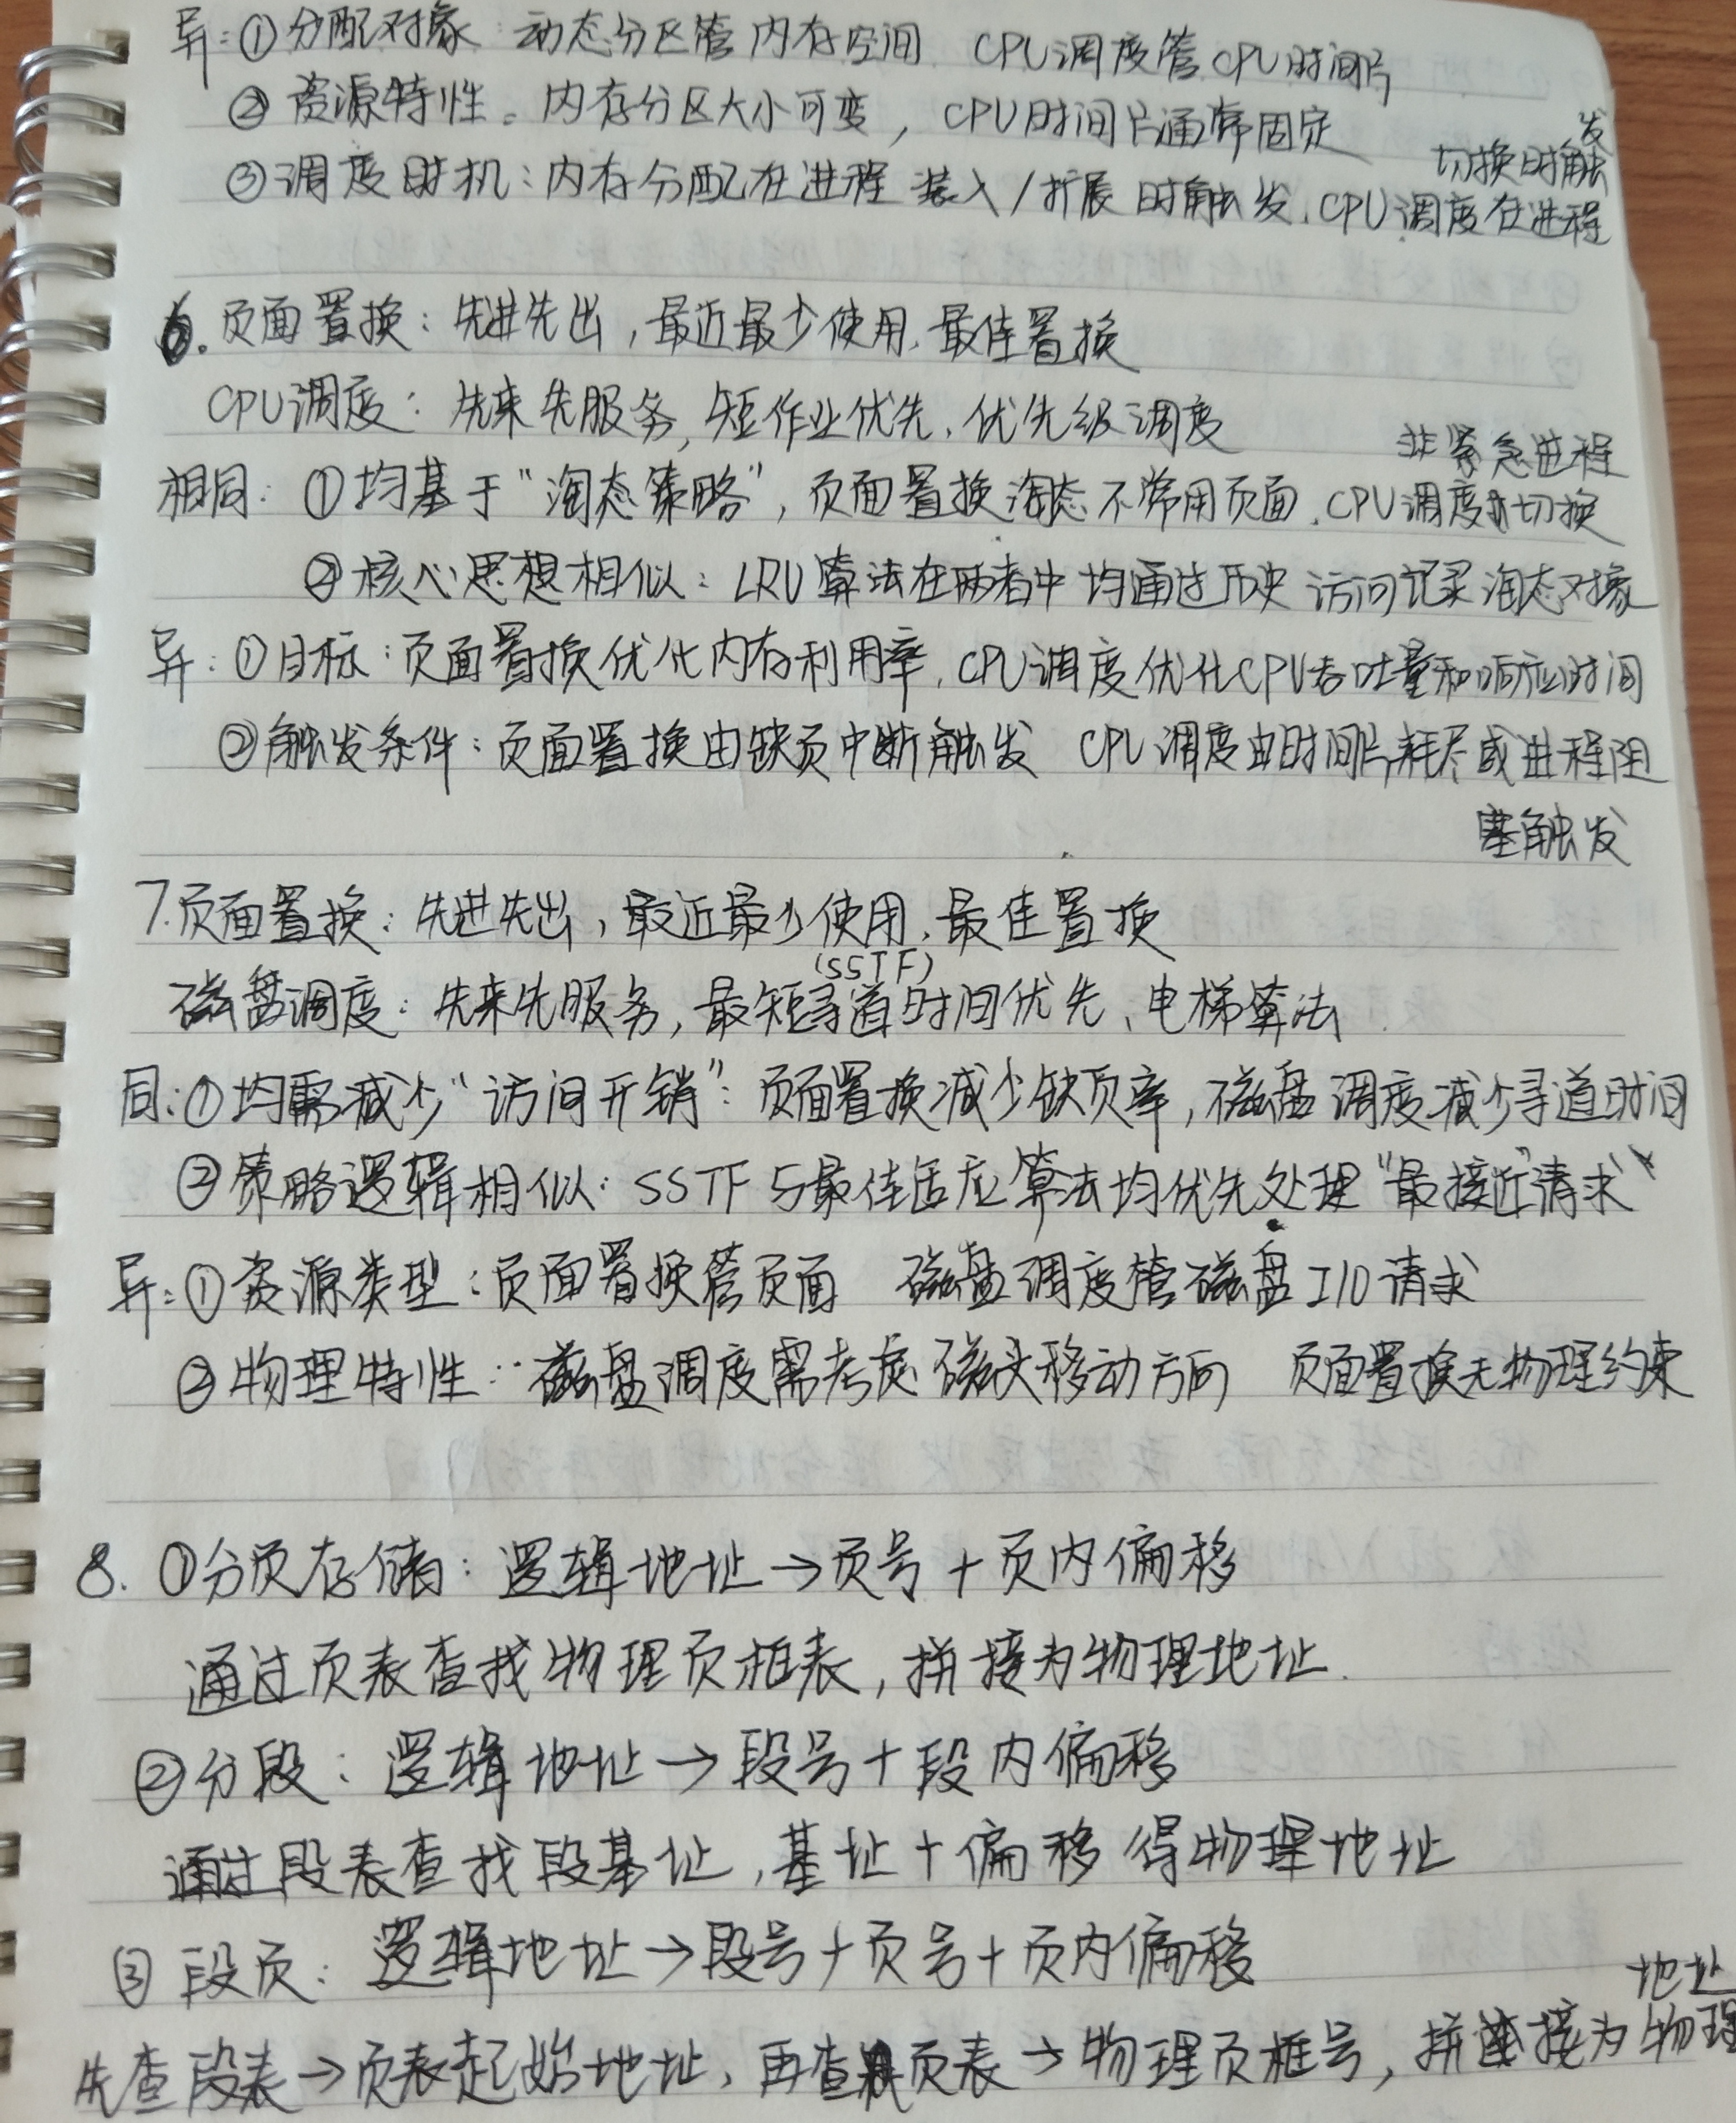 异：①分配对象 动态分区管内存空间 CPU调度管CPU时间片
②资源特性。内存分区大小可变，CPU时间片通常固定
③调度时机：内存分配在进程装入/扩展时触发，CPU调度在进程
切换时触发
6.页面置换：先进先出，最近最少使用、最佳置换
CPU调度：先来先服务，短作业优先、优先级调度
相同：①均基于“淘态策略”，页面置换淘态不常用页面，CPU调度切换
非紧急进程
②核心思想相似：LRU算法在两者中均通过历史访问记录淘态对象
异：①目标：页面置换优化内存利用率，CPU调度优化CPU吞吐量和响应时间
②触发条件：页面置换由缺页中断触发 CPU调度由时间片耗尽或进程阻
塞触发
7.页面置换：先进先出，最近最少使用、最佳置换
(SSTF)
磁盘调度：先来先服务，最短寻道时间优先、电梯算法
同：①均需减少“访问开销”：页面置换减少缺页率，磁盘调度减少寻道时间
②策略逻辑相似：SSTF与最佳适应算法均优先处理“最接近”请求
异：①资源类型：页面置换管页面 磁盘调度管磁盘I/O请求
②物理特性：磁盘调度需考虑磁头移动方向 页面置换无物理约束
8.①分页存储：逻辑地址→页号+页内偏移
通过页表查找物理页框表，拼接为物理地址.
②分段：逻辑地址→段号+段内偏移
通过段表查找段基址，基址+偏移得物理地址
③段页：逻辑地址→段号+页号+页内偏移
先查段表→页表起始地址，再查页表→物理页框号，拼接为物理
地址